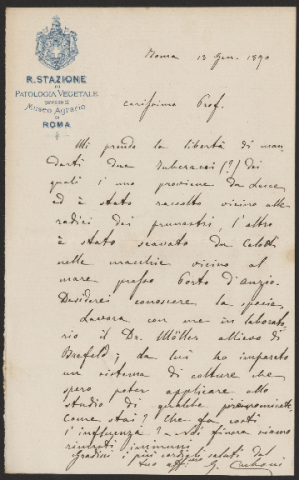 R. STAZIONE
DI
PATOLOGIA VEGETALE
PRESSO IL
Museo Agrario
DI
ROMA
Roma 13 Gen. 1890
Carissimo Prof.
Mi prendo la libertà di man
darti due tuberacei (?) dei
quali l'uno proviene da Lucca
ed è stato raccolto vicino alle
radici dei , l'altro
è stato scavato da Celotti
nelle macchie vicino al
mare presso Porto d'anzio.
Desiderei conoscere la specie.
Lavora con me in laborato
rio il Dr. Möller allievo di
Brefeld; da lui ho imparato
un sistema di colture che
spero poter applicare allo
studio di qualche pirenomicete
Come stai? Che fa costì
l'influenza? noi finora siamo
rimasti immuni
Gradisci i più cordiali saluti dal
tuo aff.mo G. Cuboni